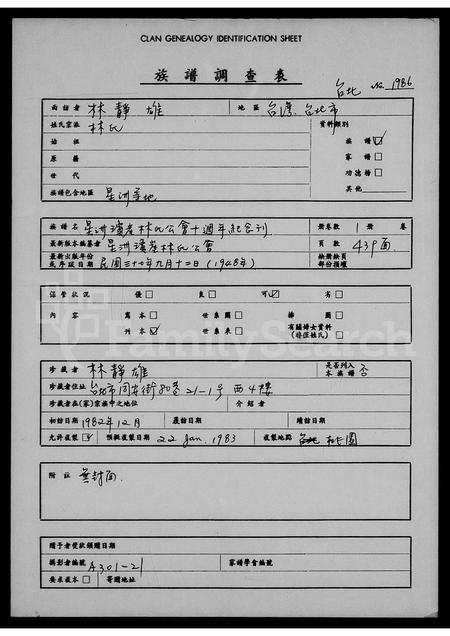 CLAN GENEALOGY IDENTIFICATION SHEET
族譜調查表
台北 No 1986
面訪者 林靜雄 地區 台灣、台北市
姓氏宗派 林氏 資料類別
始祖 族譜☑
原籍 家譜□
世代 功德榜□
族譜包含地區 星洲等地 其他
族譜名 星洲濱崖林氏公會十週年紀念刊 冊卷數 1 冊 卷
最新版本編纂者 星洲濱崖林氏公會 頁數 439面
最新出版年份 缺冊缺頁
或序跋日期 民國三十七年九月十二日(1948年) 部份損壞
保管狀況 優□ 良□ 可☑ 劣□
內容 寫本□ 世系圖□ 插圖□
刊本☑ 世系表□ 有關婦女資料□
(非僅姓氏)
珍藏者 林靜雄 是否列入
本族譜 否
珍藏者住址 台北市同安街80巷21-1号西4樓
珍藏者在(家)宗族中之地位 介紹者
初訪日期 1982年12月 履訪日期 續訪日期
允許複製☑ 預擬複製日期 22 Jan. 1983 複製地點 桃園
附註 無封面.
贈予者獎狀頒贈日期
攝影者編號 A301-21 家譜學會編號
要求複本□ 寄贈地址
FamilySearch